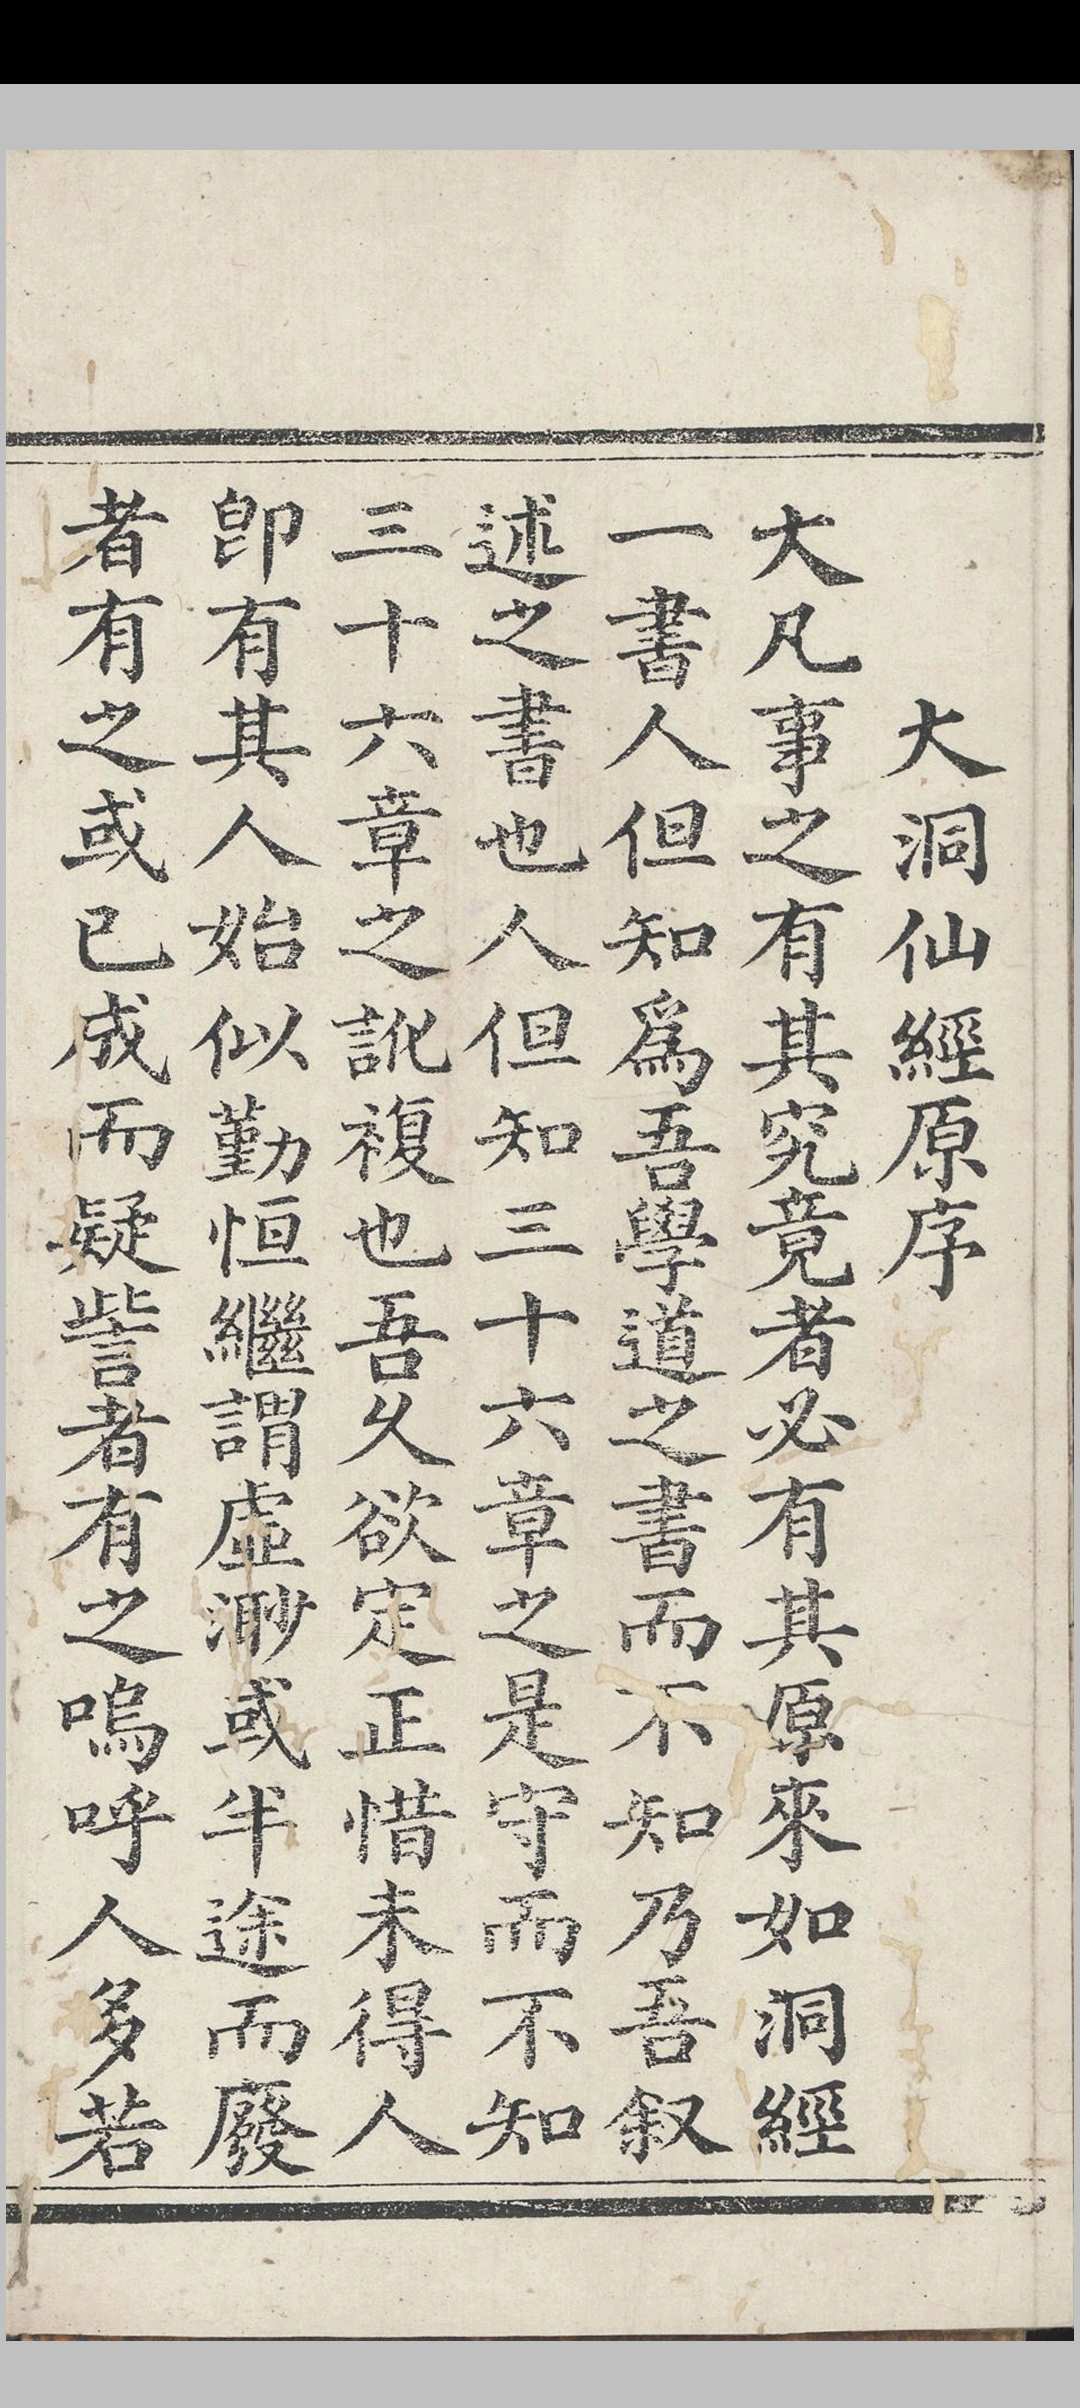 大洞仙經原序
大凡事之有其究竟者必有其原來如洞經
一書人但知爲吾學道之書而不知乃吾叙
述之書也人但知三十六章之是守而不知
三十六章之訛複也吾久欲定正惜未得人
卽有其人始似勤恒繼謂虛渺或半途而廢
者有之或已成而疑訾者有之嗚呼人多若